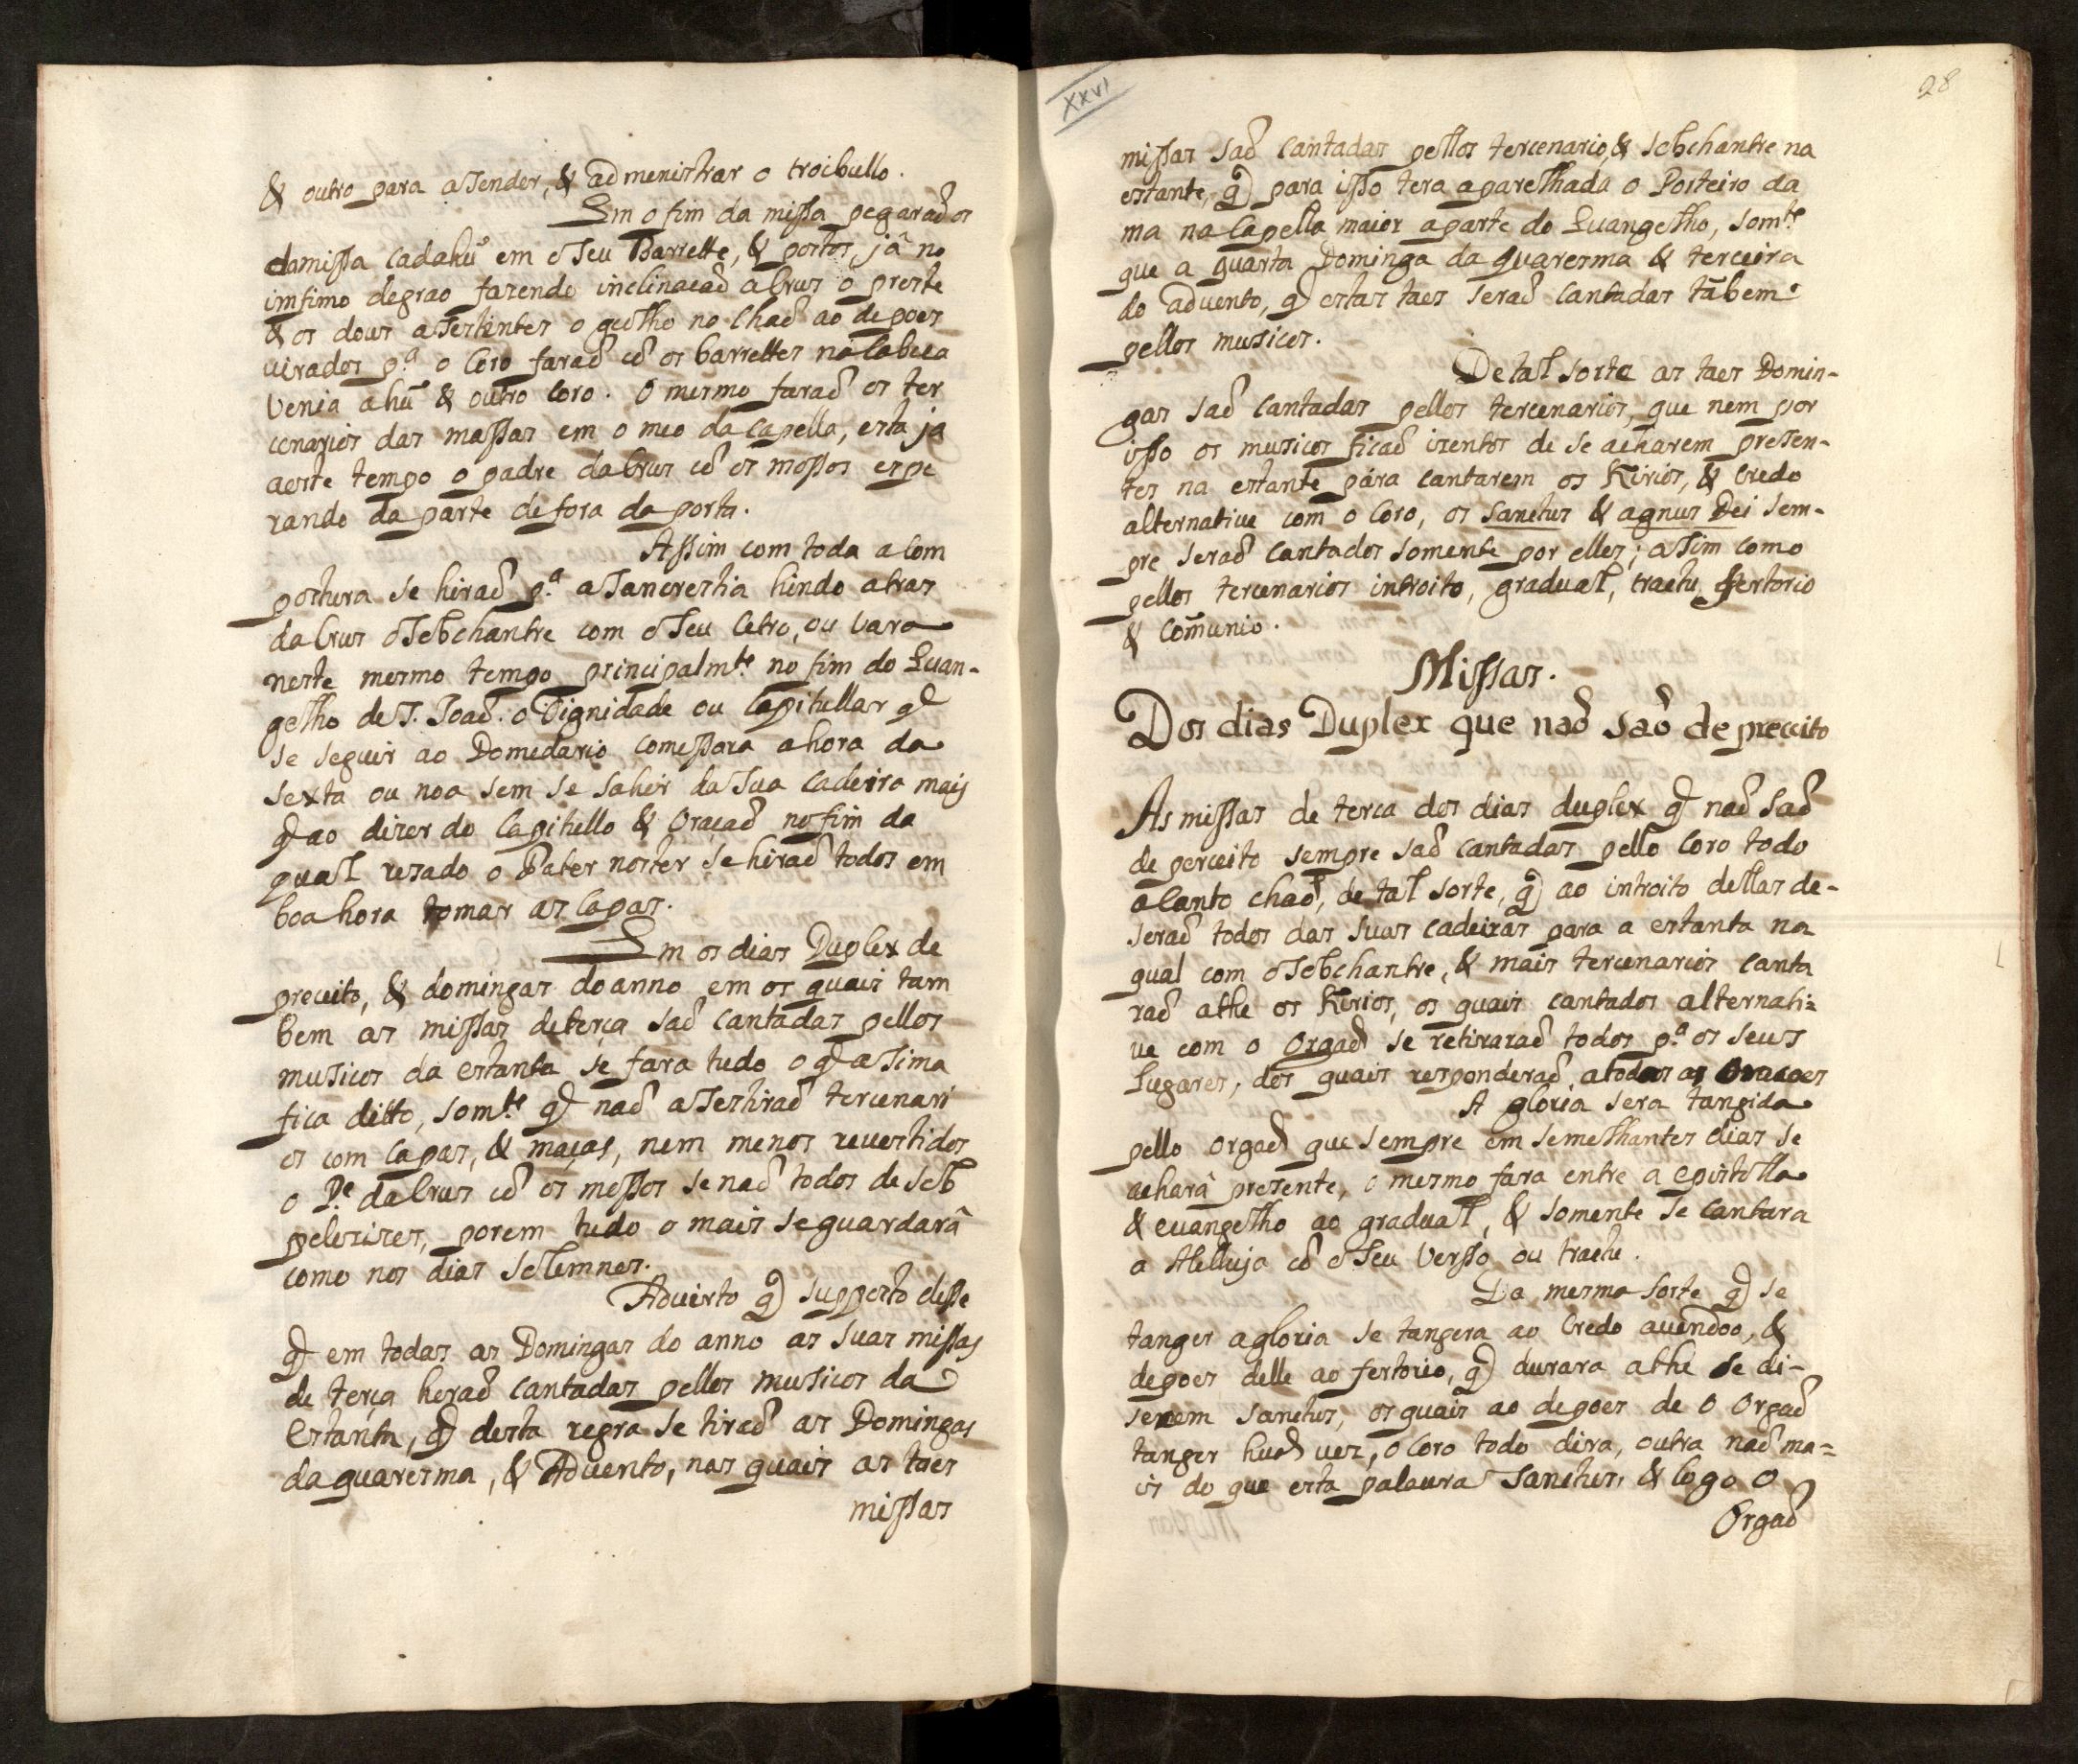 & outro para aSender, & admenistrar o troibullo.
Em o fim da missa pegaraõ os
damissa cadahũ em oSeu Barrette, & postos, jâ no
imfimo degrao fazendo inclinacaõ aCrus o preste
& os dous aSestentes o geolho no chaõ ao depoes
virados p.ª o Coro faraõ cõ os barrettes naCabeca
Venia ahũ & outro Coro. O mesmo faraõ os ter
cenarios das massas em o meo daCapella, esta ja
aeste tempo o padre daCrus cõ os mossos espe
rando da parte defora da porta.
Assim com toda a Com
postura se hiraõ p.ª aSancrestia hindo atras
daCrus oSobchantre com oSeu Cetro, ou Vara
neste mesmo tempo principalm.te no fim do Euan-
gelho deS. Joaõ. o Dignidade ou Capitullar q̃
se seguir ao Domedario comessara ahora da
sexta ou noa sem se sahir daSua Cadeira mais
q̃ ao dizer do Capitullo & Oracaõ nofim da
qual resado o Pater noster se hiraõ todos em
boahora tomar as Capas.
Em os dias Duplex de
preceito, & domingas do anno em os quais tam
bem as missas deterça saõ cantadas pellos
musicos da estanta se fara tudo o q̃ aSima
fica ditto, som.te q̃ naõ aSestiraõ tercenari
os com Capas, & maças, nem menos revestidos
o P.e daCrus cõ os mossos se naõ todos de sob
pelizizes, porem tudo o mais se guardarâ
como nos dias Solemnes.
Advirto q̃ supposto disse
q̃ em todas as Domingas do anno as suas missas
de terça heraõ cantadas pellos musicos da
Estanta, q̃ desta regra se tiraõ as Domingas
daquaresma, & Advento, nas quais as taes
missas
XXVI
28
missas saõ Cantadas pellos tercenario, & Sobchantre na
estante, q̃ para isso tera aparelhada o Porteiro da
ma na Capella maior aparte do Euangelho, som.te
que a quarta Dominga da quaresma & terceira
do advento, q̃ estas taes seraõ Cantadas tãbem
pellos musicos.
De tal sorte as taes Domin-
gas saõ cantadas pellos tercenarios, que nem por
isso os musicos ficaõ izentos de se acharem presen-
tes na estante para cantarem os Kirios, & Credo
alternative com o Coro, os Sanctus & agnus Dei sem-
pre seraõ cantados somente por elles; aSim como
pellos tercenarios introito, gradual, tractu, ffertorio
& Com̃unio.
Missas.
Dos dias Duplex que naõ saõ de preceito
As missas de terca dos dias duplex q̃ naõ saõ
de perceito sempre saõ cantadas pello Coro todo
aCanto chaõ, de tal sorte, q̃ ao introito dellas de-
seraõ todos das suas cadeiras para a estanta na
qual com oSobchantre, & mais tercenarios canta
raõ athe os Kirios, os quais cantados alternati=
ve com o Orgaõ se retiraraõ todos p.ª os seus
Lugares, dos quais responderaõ. atodas as Oracoes
A gloria sera tangida
pello orgaõ que sempre em semelhantes dias se
acharâ presente, o mesmo fara entre a epistolla
& euangelho ao gradual, & somente se Cantara
a Alelluja cõ oSeu Versso, ou tractu.
Da mesma sorte q̃ se
tanger agloria se tangera ao Credo avendoo, &
depoes delle ao fertorio, q̃ durara athe se di-
serem Sanctus, osquais ao depoes de o Orgaõ
tanger huã vez, o Coro todo dira, outra naõ ma=
is do que esta palaura Sanctus, & logo o
Orgaõ